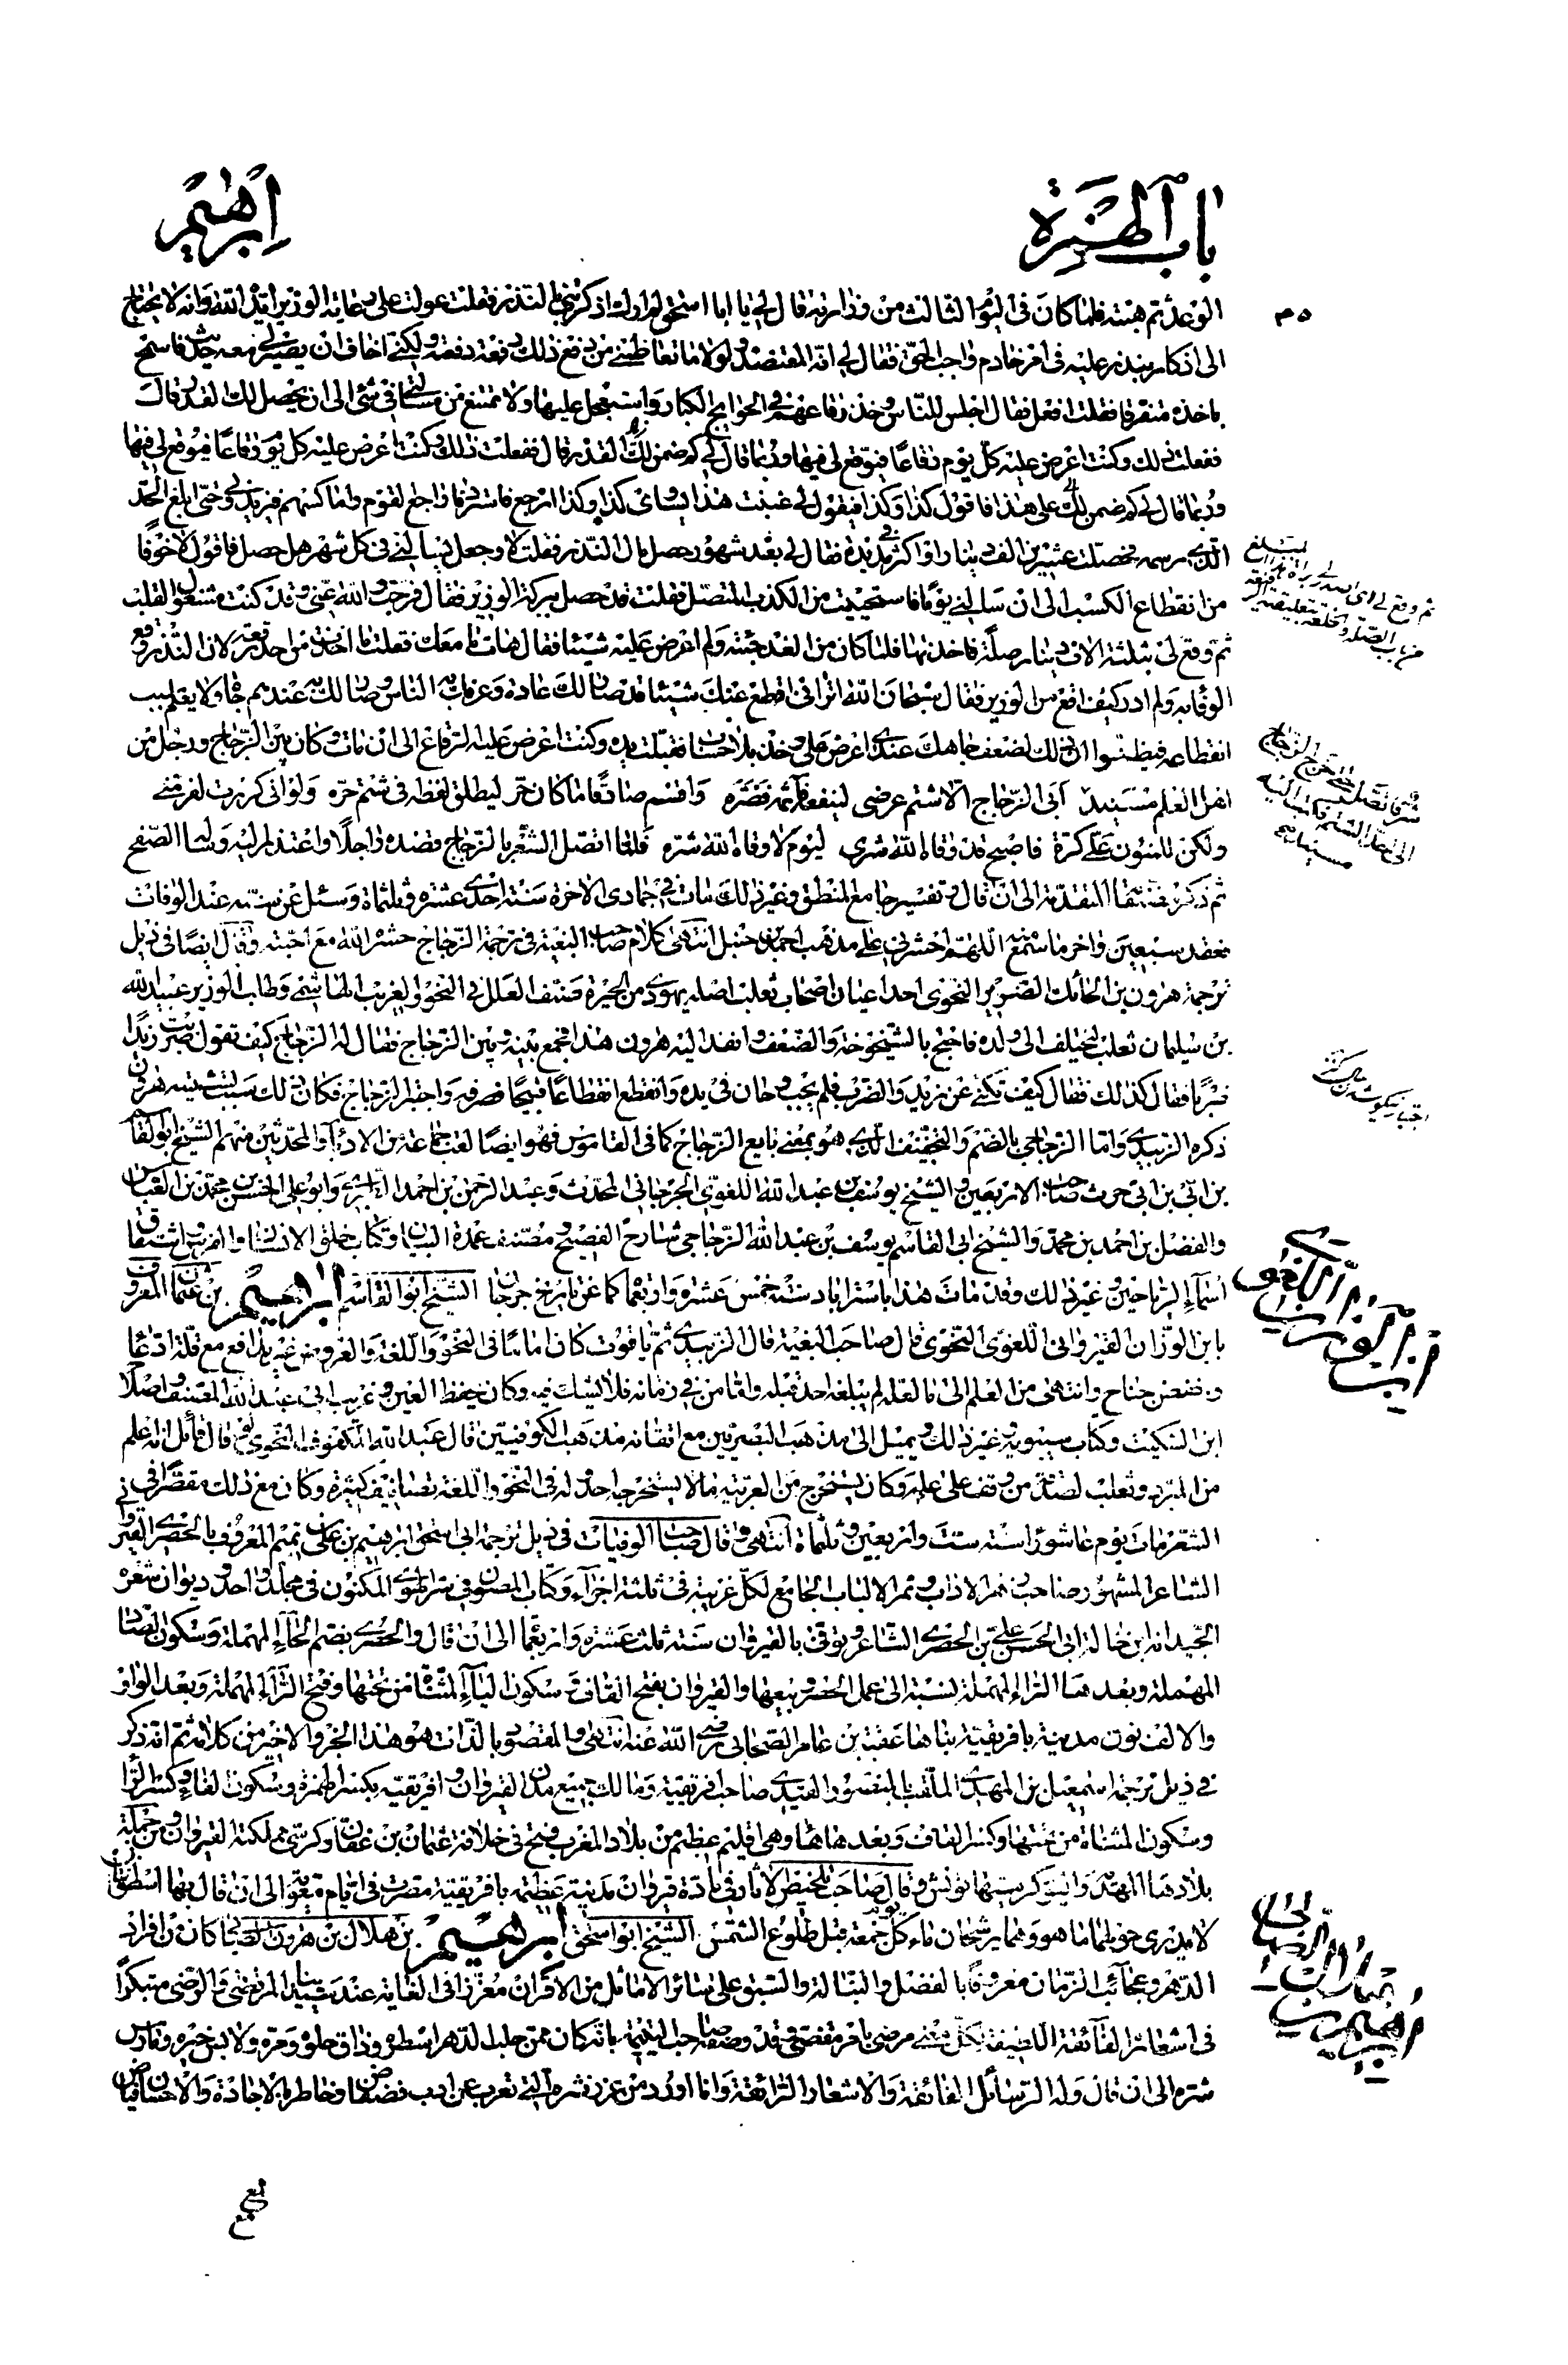 باب الهمزة
ابرهيم
٣٥
الوعد ثم هبته فلما كان في اليوم الثالث من وزارته قال لي يا ابا اسحق لم ارك اذكرتني بالنذر فقلت عولت على رعاية الوزير ايده الله وانه لا يحتاج
الى اذكار بنذر عليه في امر خادم واجب الحق فقال لي انه المعتضد ولولاه ما تعاظمني من دفع ذلك دفعة ولكني اخاف ان يصير لي معه حديث فاسمح
باخذه متفرقا فقلت افعل فقال اجلس للناس وخذ رقاعهم في الحوايج الكبار واستجعل عليها ولا تمتنع من مسئلتي في شئ الى ان يحصل لك القدر قال
ففعلت ذلك وكنت اعرض عليه كل يوم رقاعا فيوقع لي فيها وربما قال لي كم ضمن لك
وربما قال لي كم ضمن لك على هذا فاقول كذا وكذا فيقول لي غبنت هذا يساوى كذا وكذا ارجع فاستزد فاراجع القوم واماكسهم فيزيدوني حتى ابلغ الحد
الذي رسمه فحصلت عشرين الف دينار او اكثر في مديدة فقال لي بعد شهور حصل مال النذر فقلت لا وجعل يسالني في كل شهر هل حصل فاقول لا خوفا
من انقطاع الكسب الى ان سالني يوما فاستحييت من الكذب المتصل فقلت قد حصل ببركة الوزير فقال فرجت والله عني وقد كنت مشغول القلب
ثم وقع لي بثلثة الاف دينار صلة فاخذتها فلما كان من الغد جئته ولم اعرض عليه شيئا فقال هات ما معك فقلت ما اخذت من احد رقعة لان النذر وقع
الوفاء به ولم ادر كيف اقع من الوزير فقال سبحان الله اتراني اقطع عنك شيئا قد صار لك عادة وعرفك به الناس وصار لك به عندهم جاه ولا يعلم سبب
انقطاعه فيظنوا ان ذلك لضعف جاهك عندي اعرض علي وخذ بلا حساب فقبلت يده وكنت اعرض عليه الرقاع الى ان مات وكان بين الزجاج ورجل من
اهل العلم مسيند ابي الزجاج الا شتم عرضي لينفعه فآثمه فضره واقسم صادقا ما كان حر ليطلق لفظه في شتم حره ولو اني كررت لفر مني
ولكن للمنون علي كرة فاصبح قد وقاه الله شري ليوم لا وقاه الله شره فلما اتصل الشعر بالزجاج قصده راجلا واعتذر اليه وسأله الصفح
ثم ذكر مصنفاته المتقدمة الى ان قال وتفسير جامع المنطق وغير ذلك مات في جمادى الاخرة سنة احدى عشرة وثلثماة وسئل عن سنه عند الوفات
فعقد سبعين واخر ما سمع منه اللهم احشرني على مذهب احمد بن حنبل انتهى كلام صاحب البغية في ترجمة الزجاج حشره الله مع احبته وقال ايضا في ذيل
ترجمة هرون بن الحائك الضرير النحوي احد اعيان اصحاب ثعلب اصله يهودي من الحيرة صنف العلل في النحو والغريب الهاشمي وطلب الوزير عبيد الله
بن سليمان ثعلب ليختلف الى ولده فاحتج بالشيخوخة والضعف وانفذ اليه هرون هذا فجمع بينه وبين الزجاج فقال له الزجاج كيف تقول ضربت زيدا
ضربا فقال كذلك فقال كيف تكني عن زيد والضرب فلم يجب وحان في يده وانقطع انقطاعا قبيحا فصرفه واحتبر الزجاج فكان ذلك سبب منيته هرون
ذكره الزبيدي واما الزجاجي بالضم والتخفيف الذي هو بمعنى بايع الزجاج كما في القاموس فهو ايضا لقب جماعة من الادباء والمحدثين منهم الشيخ ابو القاسم
بن ابي بن ابي حرث صاحب الاربعين والشيخ يوسف بن عبد الله اللغوي الجرجاني المحدث وعبد الرحمن بن احمد الطبري وابو علي الحسن بن محمد بن العباس
والفضل بن احمد بن محمد والشيخ ابي القاسم يوسف بن عبد الله الزجاجي شارح الفصيح ومصنف عمدة البيان وكتاب خلق الانسان والفرس واشتقاق
اسماء الرياحين وغير ذلك وقد مات هذا باستراباد سنة خمس عشرة واربعماة كما عن تاريخ جرجان الشيخ ابو القاسم ابراهيم بن عثمان المعروف
بابن الوزان القيرواني اللغوي النحوي قال صاحب البغية قال الزبيدي ثم ياقوت كان اماما في النحو واللغة والعروض غير مدافع مع قلة ادعاء
وخفض جناح وانتهى من العلم الى ما لعله لم يبلغه احد قبله واما من في زمانه فلا يشك فيه وكان يحفظ العين وغريب ابي عبيد المصنف واصلاح
ابن السكيت وكتاب سيبويه وغير ذلك ويميل الى مذهب البصريين مع اتقانه مذهب الكوفيين قال عبد الله المكفوف النحوي لو قال قائل انه اعلم
من المبرد وثعلب لصدقه من وقف على علمه وكان يستخرج من العربية ما لا يستخرجه احد له في النحو واللغة تصانيف كثيرة وكان مع ذلك مقصرا في
الشعر مات يوم عاشورا سنة ست واربعين وثلثماة انتهى وقال صاحب الوفيات في ذيل ترجمة ابي اسحق ابرهيم بن علي بن تميم المعروف بالحصري القيرواني
الشاعر المشهور صاحب زهر الاداب وثمر الالباب الجامع لكل غريبة في ثلثة اجزاء وكتاب المصون في سر الهوى المكنون في مجلد واحد وديوان شعره
الجيد انه ابن خالة ابي الحسن علي بن الحصري الشاعر وتوفى بالقيروان سنة ثلث عشرة واربعماة الى ان قال والحصري بضم الحاء المهملة وسكون الصاد
المهملة وبعدها الراء المهملة نسبة الى عمل الحصر وبيعها والقيروان بفتح القاف وسكون الياء المثناة من تحتها وفتح الراء المهملة وبعد الواو
والالف نون مدينة بافريقية بناها عقبة بن عامر الصحابي رضي الله عنه انتهى والمقصود بالذات هو هذا الجزو الاخير من كلامه ثم انه ذكر
في ذيل ترجمة اسمعيل بن المهدي الملقب بالمنصور العبيدي صاحب افريقية ومالك جميع مدن القيروان وافريقية بكسر الهمزة وسكون الفاء وكسر الراء
وسكون المثناة من تحتها وكسر القاف وبعدها هاء وهي اقليم عظيم من بلاد المغرب فتح في خلافة عثمان بن عفان وكرسي مملكته القيروان ومن جملة
بلادها المهدية واليوم كرسيها تونس وقال صاحب تلخيص الاثار في مادة قيروان مدينة عظيمة بافريقية مصرت في ايام معوية الى ان قال بها اسطوانتان
لا يدرى جوهرهما ما هو وهما يرشحان ماء كل جمعة قبل طلوع الشمس الشيخ ابو اسحق ابرهيم بن هلال بن هرون الصابي كان من افراد
الدهر وعجائب الزمان معروفا بالفضل والنبالة والسبق على سائر الاماثل من الاقران معززا في الغاية عند سيدينا المرتضى والرضي متبكرا
في اشعاره الفائقة اللطيفة لكل معنى مرضي باهر مقضي وقد وصفه صاحب اليتيمة بانه كان ممن حلب الدهر اشطره وذاق حلوه ومره ولابس خيره ومارس
شره الى ان قال وله الرسائل الفائقة والاشعار الرائقة وانا اورد من غرر نثره التي تعرب عن ادب فضفاض وخاطر بالاجادة والاحسان فياض